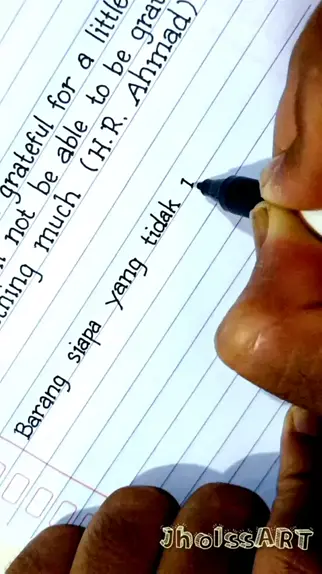 grateful for a little
not be able to be grat
hing much (H.R. Ahmad)
Barang siapa yang tidak
JholssART